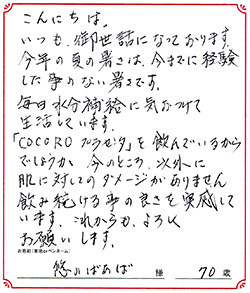 こんにちは。
いつも、御世話になっております。
今年の夏の暑さは、今までに経験
した事のない暑さです。
毎日水分補給に気をつけて
生活しています。
「COCORO プラセンタ」を飲んでいるから
でしょうか 今のところ、以外に
肌に対してのダメージがありません
飲み続ける事の良さを実感して
います。これからも、よろしく
お願いします。
お名前(本名orペンネーム)
悠々ばあば 様 70歳